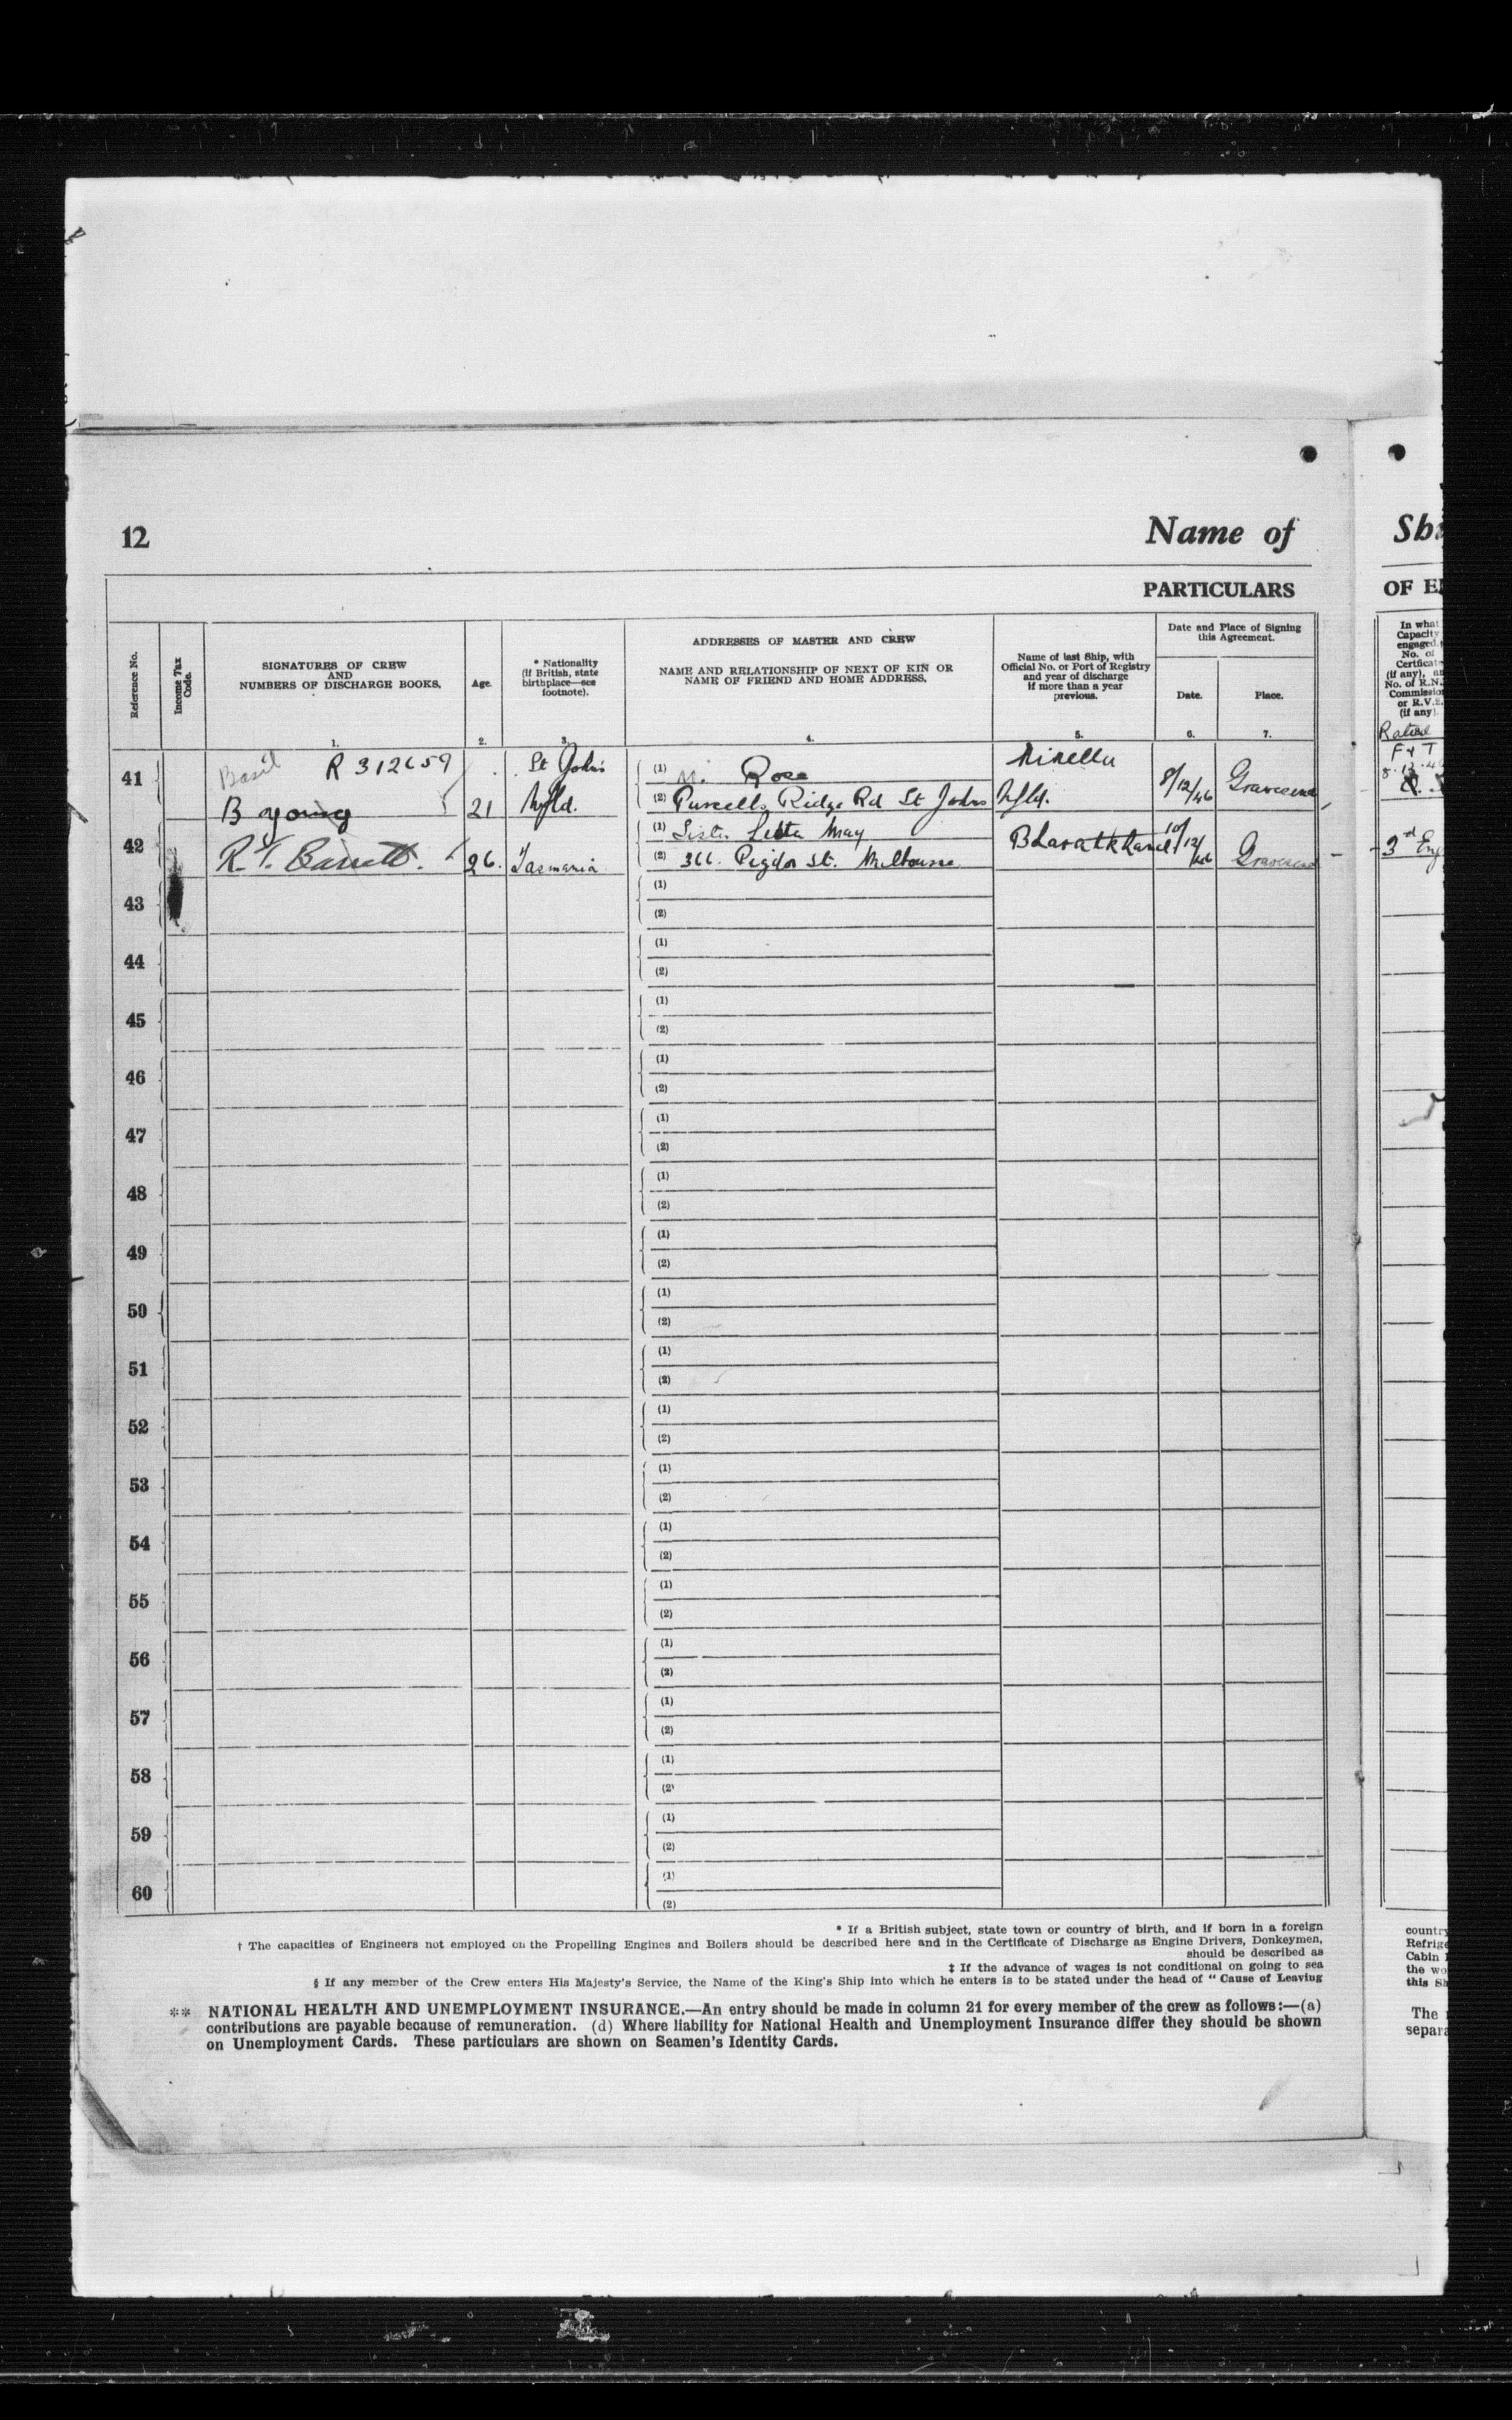 12
Name of
PARTICULARS
Reference No.
Income Tax Code.
SIGNATURES OF CREW
AND
NUMBERS OF DISCHARGE BOOKS.
1.
Age.
2.
* Nationality
(If British, state
birthplace—see
footnote).
3.
ADDRESSES OF MASTER AND CREW
NAME AND RELATIONSHIP OF NEXT OF KIN OR
NAME OF FRIEND AND HOME ADDRESS.
4.
Name of last Ship, with
Official No. or Port of Registry
and year of discharge
if more than a year
previous.
5.
Date and Place of Signing
this Agreement.
Date.
6.
Place.
7.
41 Basil R 312659 St John's (1) M. Rose
B young 21 Nfld. (2) Purcells Ridge Rd St Johns Nfld. 8/12/46 Gravesend
42 (1) Sister May Bharatkhand 10/12/46
R.T. Barrett. 26. Tasmania (2) 366. Pigdon St. Melbourne Gravesend
43 (1)
(2)
44 (1)
(2)
45 (1)
(2)
46 (1)
(2)
47 (1)
(2)
48 (1)
(2)
49 (1)
(2)
50 (1)
(2)
51 (1)
(2)
52 (1)
(2)
53 (1)
(2)
54 (1)
(2)
55 (1)
(2)
56 (1)
(2)
57 (1)
(2)
58 (1)
(2)
59 (1)
(2)
60 (1)
(2)
* If a British subject, state town or country of birth, and if born in a foreign
† The capacities of Engineers not employed on the Propelling Engines and Boilers should be described here and in the Certificate of Discharge as Engine Drivers, Donkeymen,
should be described as
‡ If the advance of wages is not conditional on going to sea
§ If any member of the Crew enters His Majesty's Service, the Name of the King's Ship into which he enters is to be stated under the head of "Cause of Leaving
** NATIONAL HEALTH AND UNEMPLOYMENT INSURANCE.—An entry should be made in column 21 for every member of the crew as follows:—(a)
contributions are payable because of remuneration. (d) Where liability for National Health and Unemployment Insurance differ they should be shown
on Unemployment Cards. These particulars are shown on Seamen's Identity Cards.
OF
In what
Capacity
engaged,
No. of
(if any),
No. of R.N.
or R.V.
(if any).
F & T
3rd Eng
country
Cabin
the
this
The